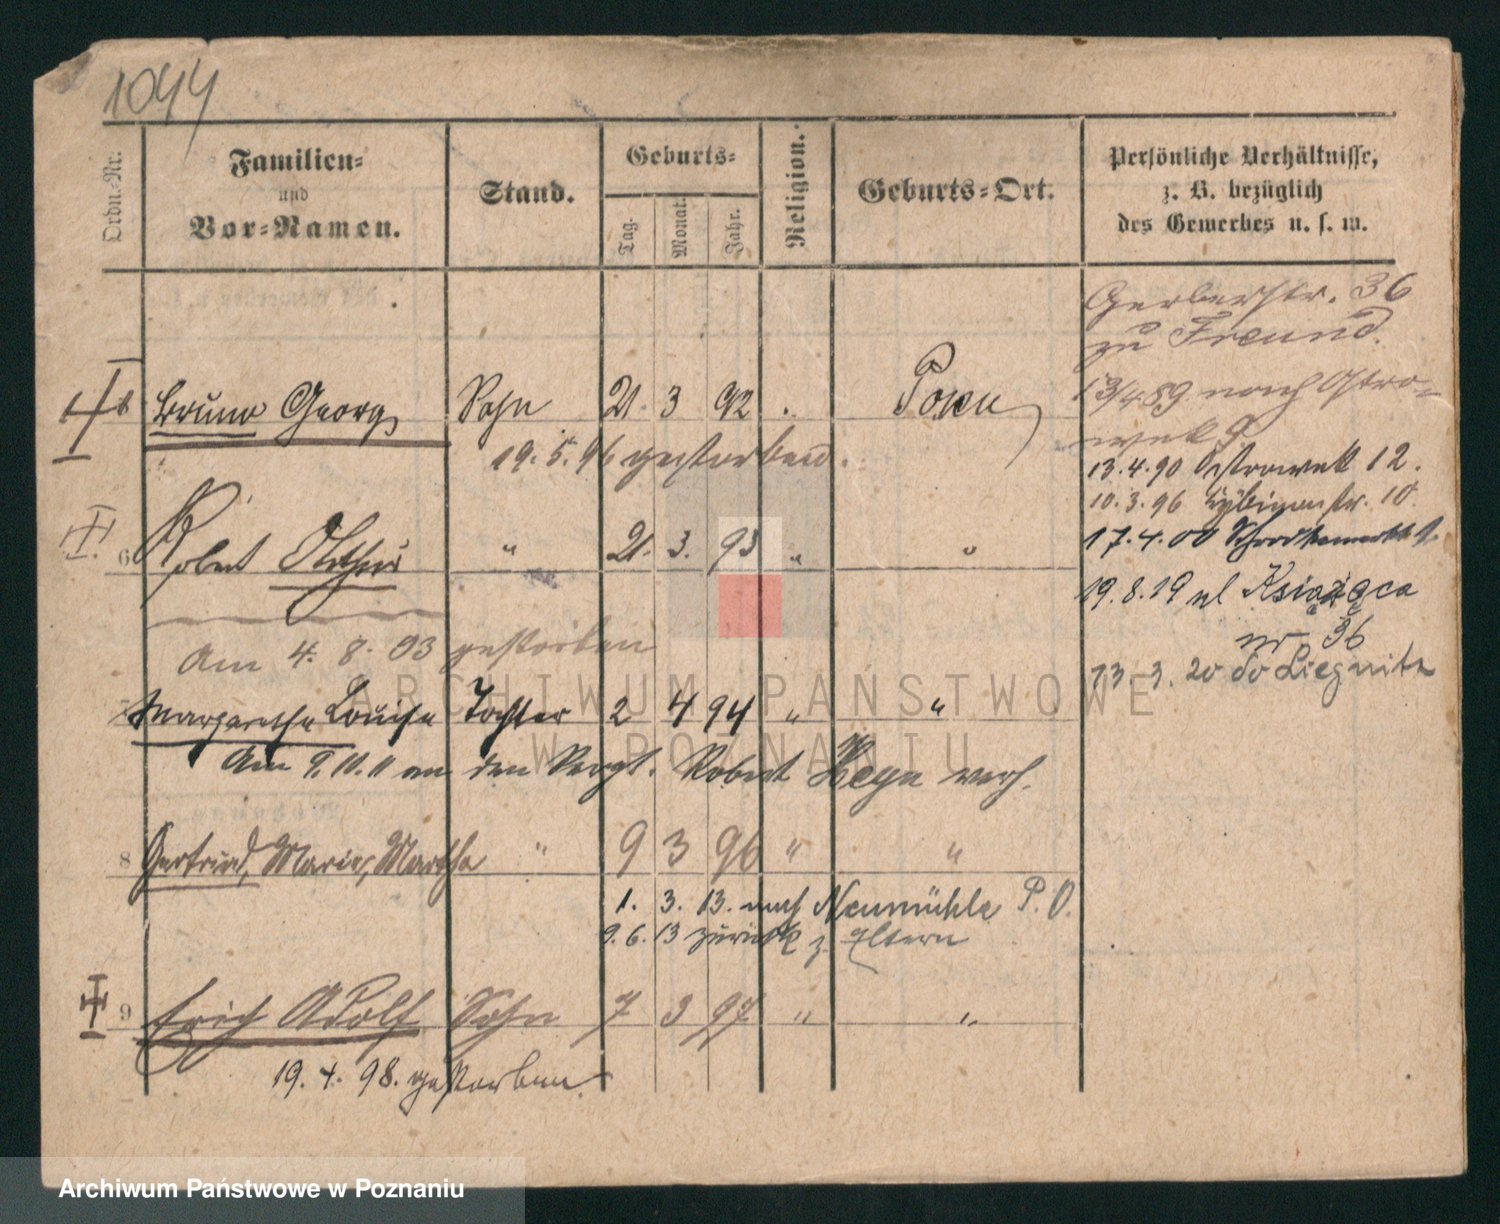 1044
Ordn.-Nr.
Familien-
und
Vor-Namen.
Stand.
Geburts-
Tag.
Monat.
Jahr.
Religion.
Geburts-Ort.
Persönliche Verhältnisse,
z. B. bezüglich
des Gewerbes u. s. w.
Gerberstr. 36
zu Freund.
13/4 89 nach Ostro-
wek 9.
13.4.90 Ostrowek 12.
10.3.96 str. 10
17.4.00
19.8.19 ul Książęca
nr 36
13.3.20 do Liegnitz
Bruno Georg Sohn 21. 3 92 Posen
19.5.96 gestorben.
6 Robert Arthur " 21. 3. 93 " "
Am 4. 8. 93 gestorben
7 Margarethe Louise Tochter 2 4 94 " "
Am 9.10.11 an den Robert Heyn verh.
8 Gertrud, Marie, Martha " 9 3 96 " "
1. 3. 13. nach Neumühle P. O.
9.6.13 zurück z. Eltern
9 Erich Adolf Sohn 7 3 97 " "
19.4.98. gestorben.
ARCHIWUM PAŃSTWOWE
W POZNANIU
Archiwum Państwowe w Poznaniu